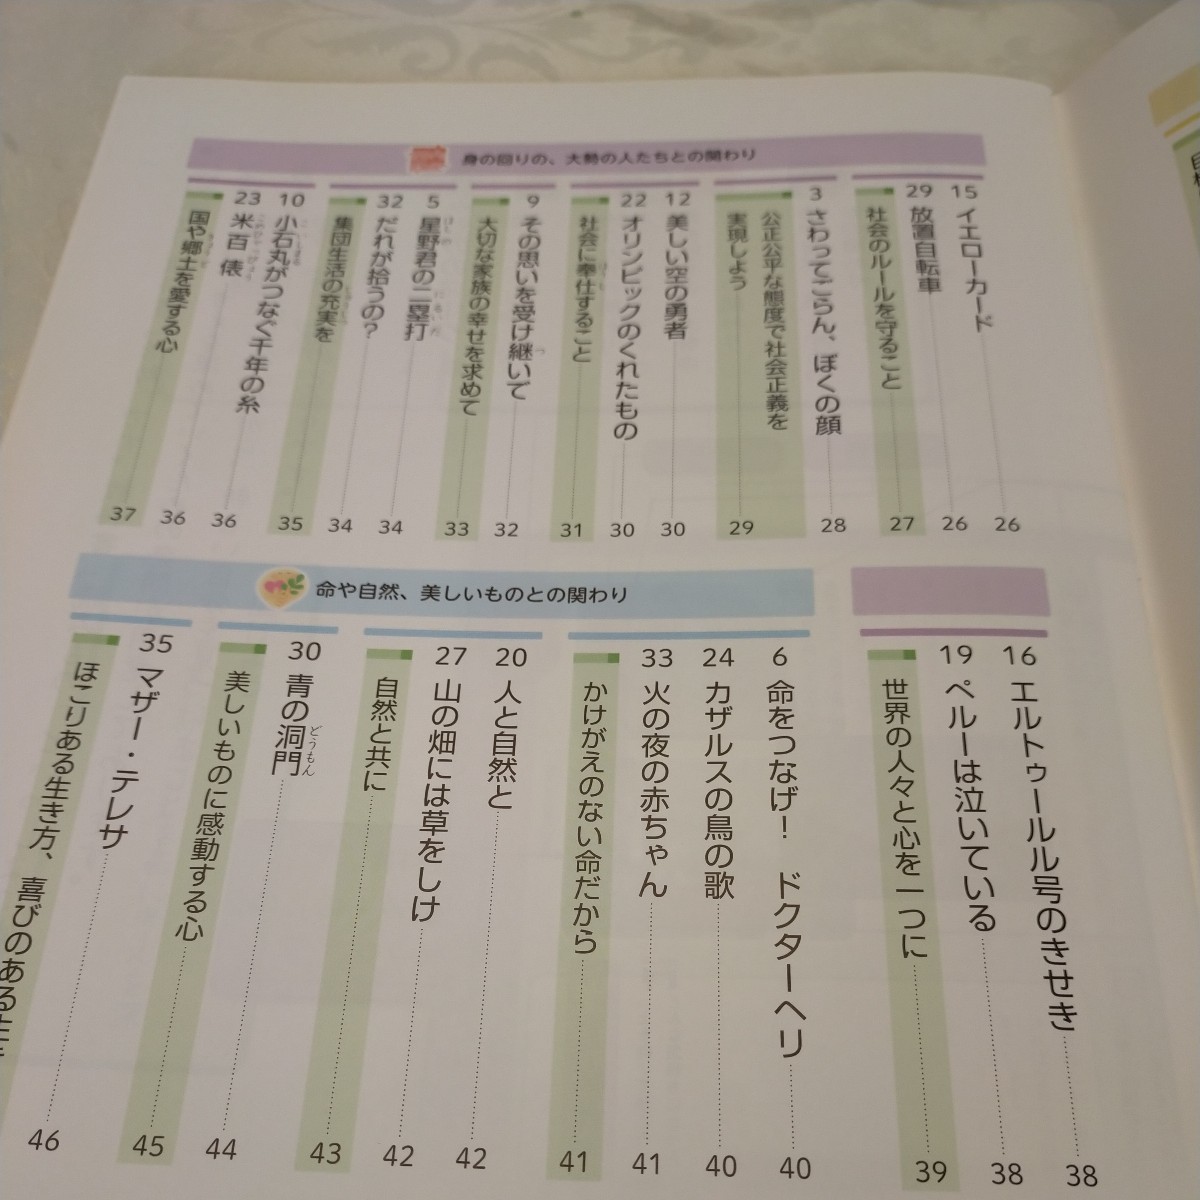 身の回りの、大勢の人たちとの関わり
15 イエローカード 26
29 放置自転車 26
社会のルールを守ること 27
3 さわってごらん、ぼくの顔 28
公正公平な態度で社会正義を
実現しよう 29
12 美しい空の勇者 30
22 オリンピックのくれたもの 30
社会に奉仕すること 31
9 その思いを受け継いで 32
大切な家族の幸せを求めて 33
5 星野君の二塁打 34
32 だれが拾うの? 34
集団生活の充実を 35
10 小石丸がつなぐ千年の糸 36
23 米百俵 36
国や郷土を愛する心 37
16 エルトゥールル号のきせき 38
19 ペルーは泣いている 38
世界の人々と心を一つに 39
命や自然、美しいものとの関わり
6 命をつなげ! ドクターヘリ 40
24 カザルスの鳥の歌 40
33 火の夜の赤ちゃん 41
かけがえのない命だから 41
20 人と自然と 42
27 山の畑には草をしけ 42
自然と共に 43
30 青の洞門 44
どうもん
美しいものに感動する心 45
35 マザー・テレサ 46
ほこりある生き方、喜びのある生